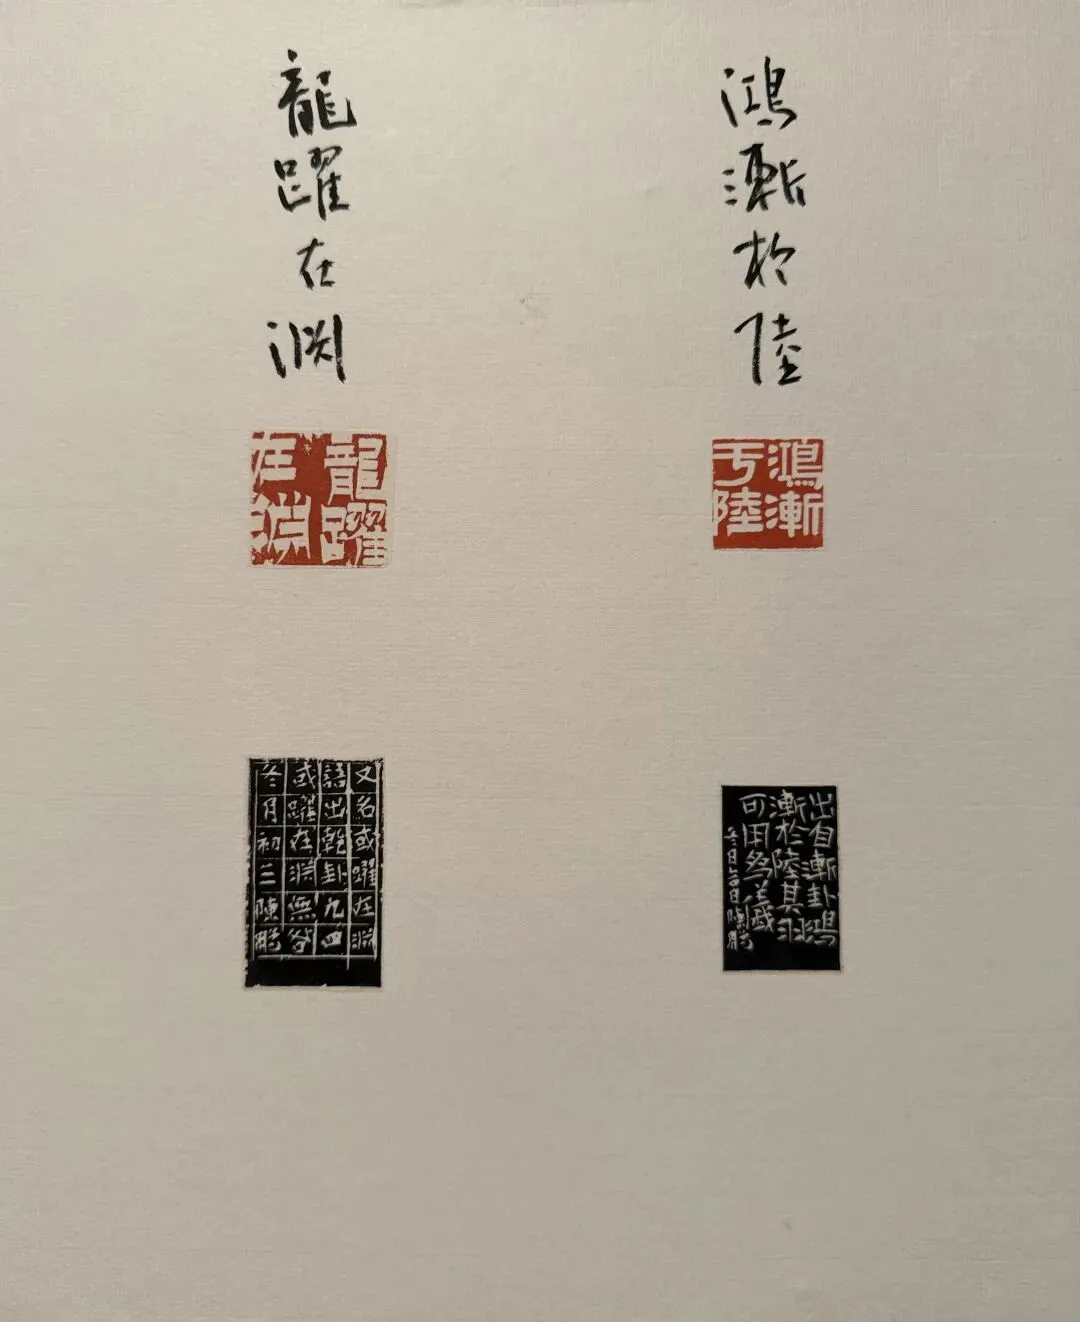 鴻漸於陸
鴻漸
于陸
出自漸卦鴻
漸於陸其羽
可用為儀
冬日
陳鵬
龍躍在渊
龍躍
在淵
又名或躍在淵
語出乾卦九四
或躍在淵無咎
冬月初二陳鵬